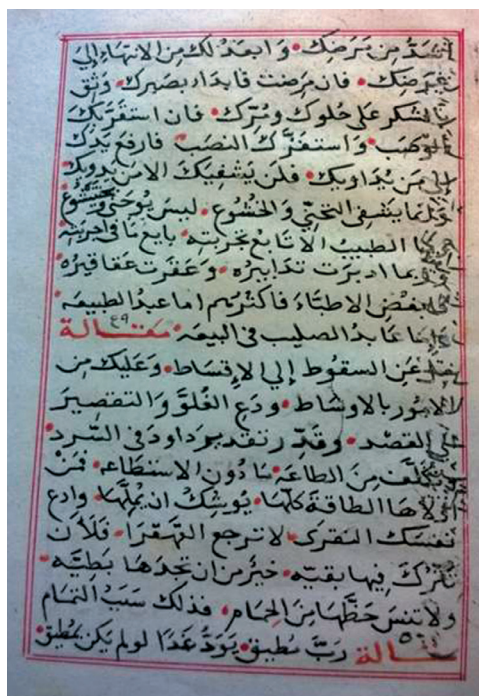 اشدُّ من مرضِك • وابعدُ لك من الانتهاء إلى
غرضِك • فان مرضت فابدأ بصبرك • وثق
بالشكر على حلوك ومُرّك • فان استفزّتك
الوصب • واستفزّك النصب فارفع يدك
إلى من يُداويك • فلن يشفيك الا من يدويك
وانما يشفى التختي والخشوع • ليس يوحنى وبختيشوع
الطبيب الا تابع تجربته • بايع ما في اجربته
وربما ادبرت تدابيره • وعقرت عقاقيره
بعض الاطبّاء فاكثرهم اما عبد الطبيعه
واما عابد الصليب في البيعه • مقالة ٤٩
عن السقوط إلى الإقساط • وعليك من
الامور بالاوساط • ودع الغلوّ والتقصير
الى القصد • وقدّر تقدير داود في السّرد •
وتكلّف من الطاعة • ما دون الاستطاعه • فمن
اولاها الطاقة كلّها • يوشك ان يملّها • وادع
نفسك النقرى • لا ترجع القهقرا • فلأن
تترك فيها بقيّه • خيرٌ من ان تجدها بطيّه •
ولا تنس حظّها من الجمام • فذلك سبب التمام
مقالة ٥٠ ربّ مطيق • يودّ غدًا لو لم يكن يطيق •